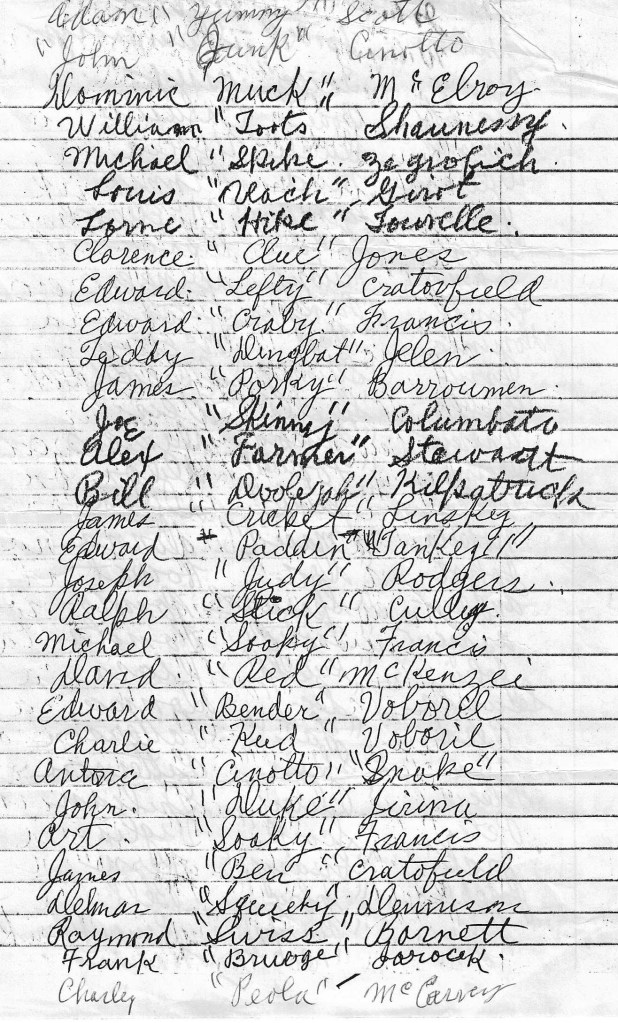 Adam "Yummy" Scott
"John "Junk" Cinotto
Dominic Muck" McElroy
William "Toots Shaunessy.
Michael "Spike. Zagrofich.
Louis "Nach" Girot
Lorne "Hike" Tourelle.
Clarence "Clue" Jones
Edward. "Lefty" Cratofield
Edward. "Craby" Francis.
Teddy "Dingbat" Jelen.
James "Porky" Barroumen.
Joe "Skinny" Columbato
Alex "Farmer" Stewart
Bill " Kilpatrick
James "Cricket" Linskey
Edward " Paddin "Yankey"
Joseph "Judy" Rodgers.
Ralph "Stick" Cully.
Michael "Soaky" Francis
David. "Red" McKenzei
Edward "Bender" Voborel
Charlie "Kud" Voboril
Antone "Cinotto" "Snake"
John. "Duke" Jirina
Art. "Soaky" Francis
James "Ben" Cratofield
Delmar "Squeeky" Dennison
Raymond "Swiss" Barnett
Frank "Bruoge" Jarocek.
Charley "Peola" - McCarvey